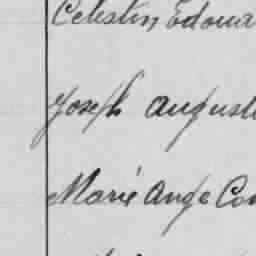 Celestin Edoua
Joseph Auguste
Marie Ange Con